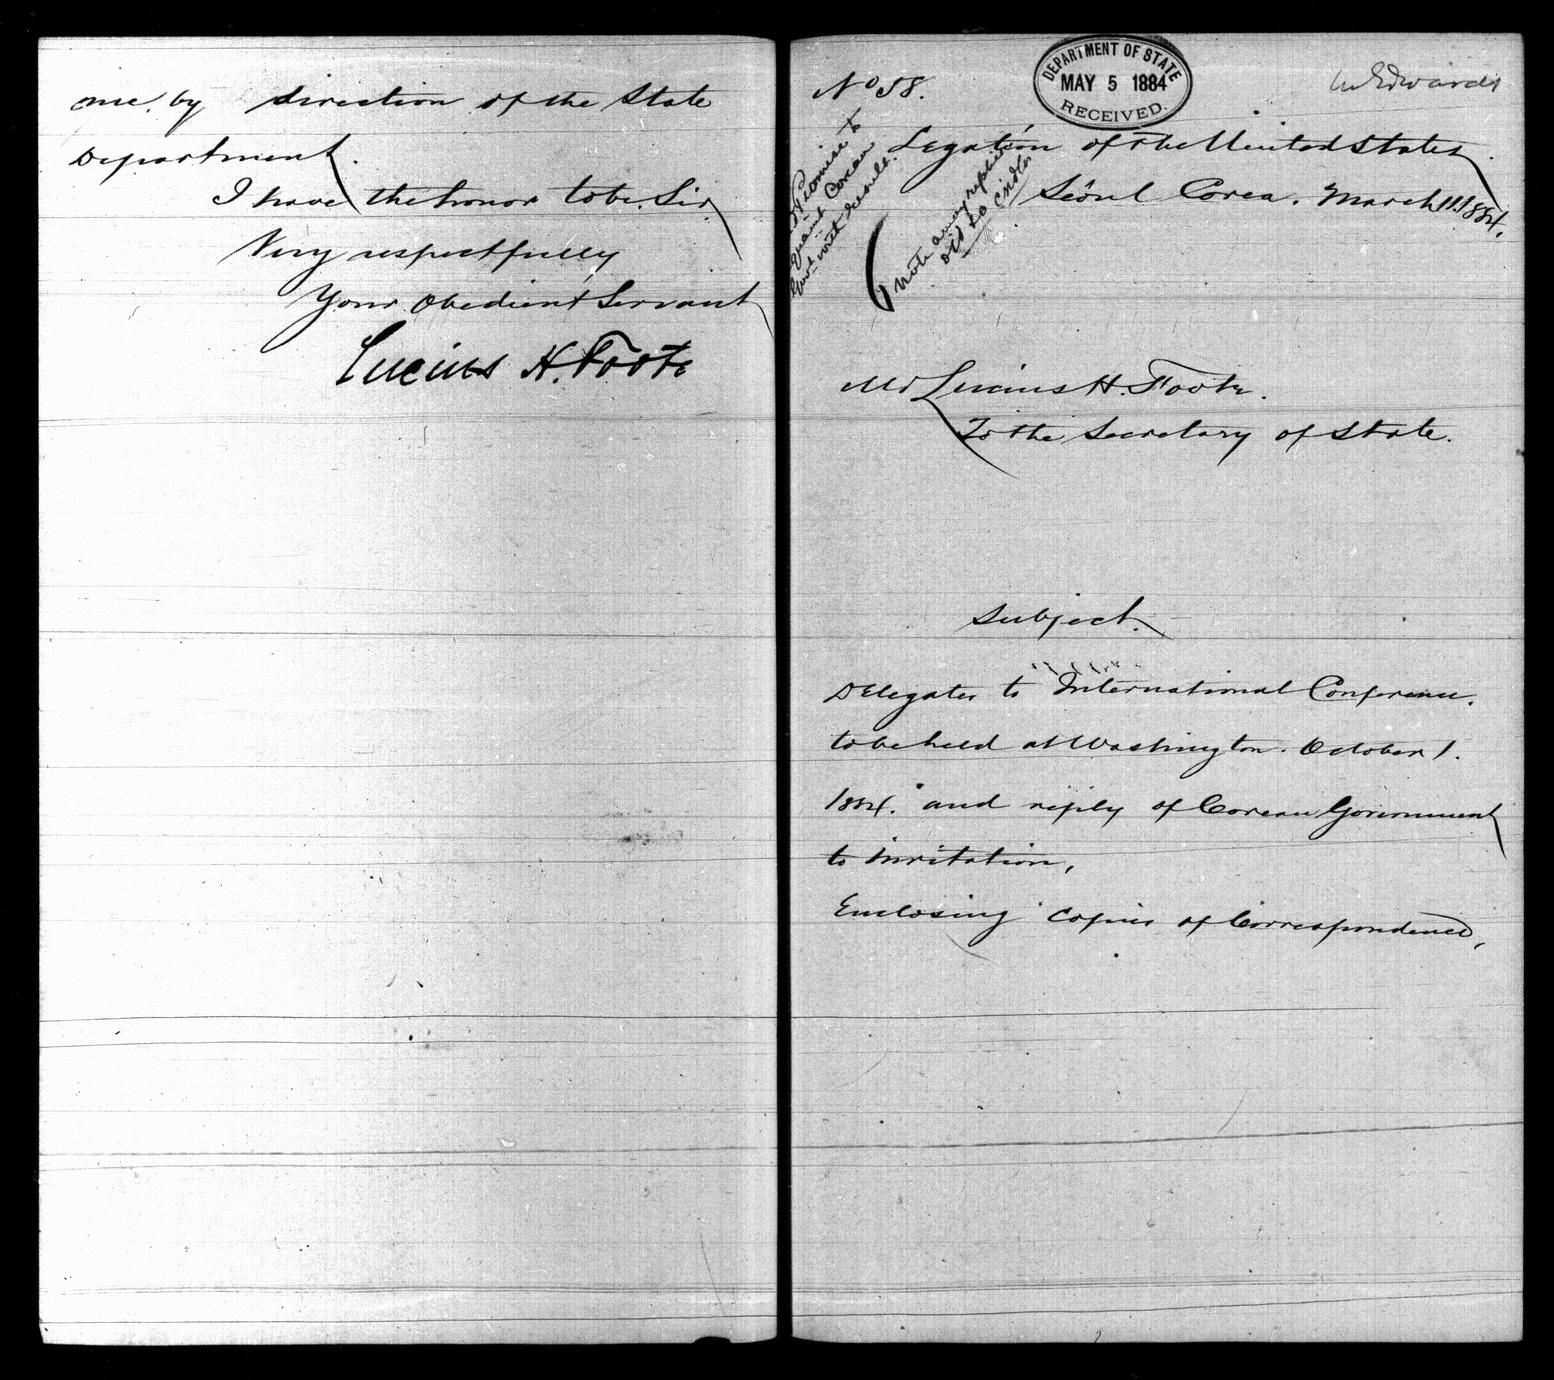 me, by direction of the State
Department.
I have the honor to be. Sir
Very respectfully
Your Obedient Servant
Lucius H. Foote
No 58.
DEPARTMENT OF STATE
MAY 5 1884
RECEIVED.
Edwards
Promise to
Corean
Govt with result.
Note any replies
Legation of the United States.
Séoul Corea. March 11. 1884.
Mr Lucius H. Foote.
To the Secretary of State.
Subject.
Delegates to International Conference.
to be held at Washington. October 1.
1884. and reply of Corean Government
to invitation,
Enclosing copies of Correspondence,